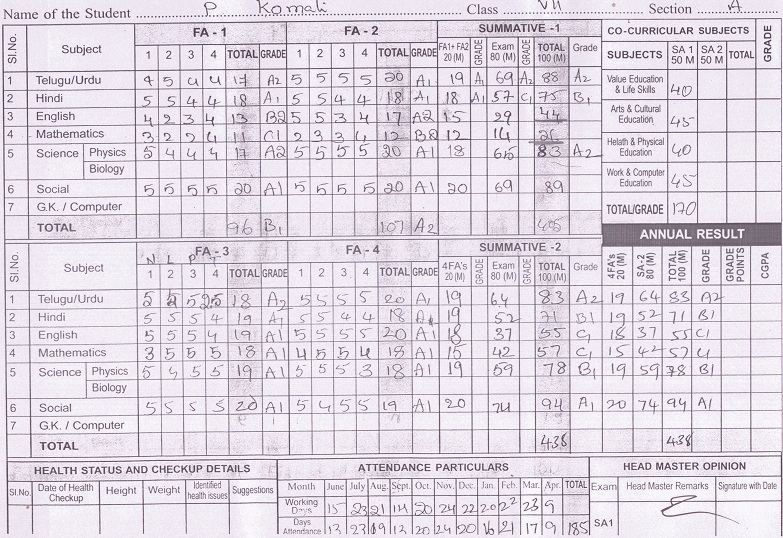 Name of the Student P Komali Class VII Section A
Sl.No. Subject FA - 1 FA - 2 SUMMATIVE -1 CO-CURRICULAR SUBJECTS GRADE
1 2 3 4 TOTAL GRADE 1 2 3 4 TOTAL GRADE FA1+ FA2 20 (M) GRADE Exam 80 (M) GRADE TOTAL 100 (M) Grade SUBJECTS SA 1 50 M SA 2 50 M TOTAL
1 Telugu/Urdu 4 5 4 4 17 A2 5 5 5 5 20 A1 19 A1 69 A2 88 A2
Value Education & Life Skills 40
2 Hindi 5 5 4 4 18 A1 5 5 4 4 18 A1 18 A1 57 C1 75 B1
Arts & Cultural Education 45
3 English 4 2 3 4 13 B2 5 5 3 4 17 A2 15 29 44
4 Mathematics 3 2 2 4 11 C1 2 3 3 4 12 B2 12 14 26
5 Science Physics 5 4 4 4 17 A2 5 5 5 5 20 A1 18 65 83 A2
Helath & Physical Education 40
Biology
6 Social 5 5 5 5 20 A1 5 5 5 5 20 A1 20 69 89
Work & Computer Education 45
7 G.K. / Computer
TOTAL/GRADE 170
TOTAL 96 B1 107 A2 405
ANNUAL RESULT
Sl.No. Subject FA - 3 FA - 4 SUMMATIVE -2
N L P T
1 2 3 4 TOTAL GRADE 1 2 3 4 TOTAL GRADE 4FA's 20 (M) GRADE Exam 80 (M) GRADE TOTAL 100 (M) Grade 4FA's 20 (M) SA-2 80 (M) TOTAL 100 (M) GRADE GRADE POINTS CGPA
1 Telugu/Urdu 5 5 18 A2 5 5 5 5 20 A1 19 64 83 A2 19 64 83 A2
2 Hindi 5 5 5 4 19 A1 5 5 4 4 18 A1 19 52 71 B1 19 52 71 B1
3 English 5 5 5 4 19 A1 5 5 5 5 20 A1 18 37 55 C1 18 37 55 C1
4 Mathematics 3 5 5 5 18 A1 4 5 5 4 18 A1 15 42 57 C1 15 42 57 C1
5 Science Physics 5 4 5 5 19 A1 5 5 5 3 18 A1 19 59 78 B1 19 59 78 B1
Biology
6 Social 5 5 5 5 20 A1 5 4 5 5 19 A1 20 74 94 A1 20 74 94 A1
7 G.K. / Computer
TOTAL 438 438
HEALTH STATUS AND CHECKUP DETAILS ATTENDANCE PARTICULARS HEAD MASTER OPINION
Sl.No. Date of Health Checkup Height Weight Identified health issues Suggestions Month June July Aug. Sept. Oct. Nov. Dec. Jan. Feb. Mar. Apr. TOTAL Exam Head Master Remarks Signature with Date
Working Days 15 23 21 14 20 24 22 20 22 23 9
Days Attendance 13 23 19 13 20 24 20 16 21 17 9 185 SA1